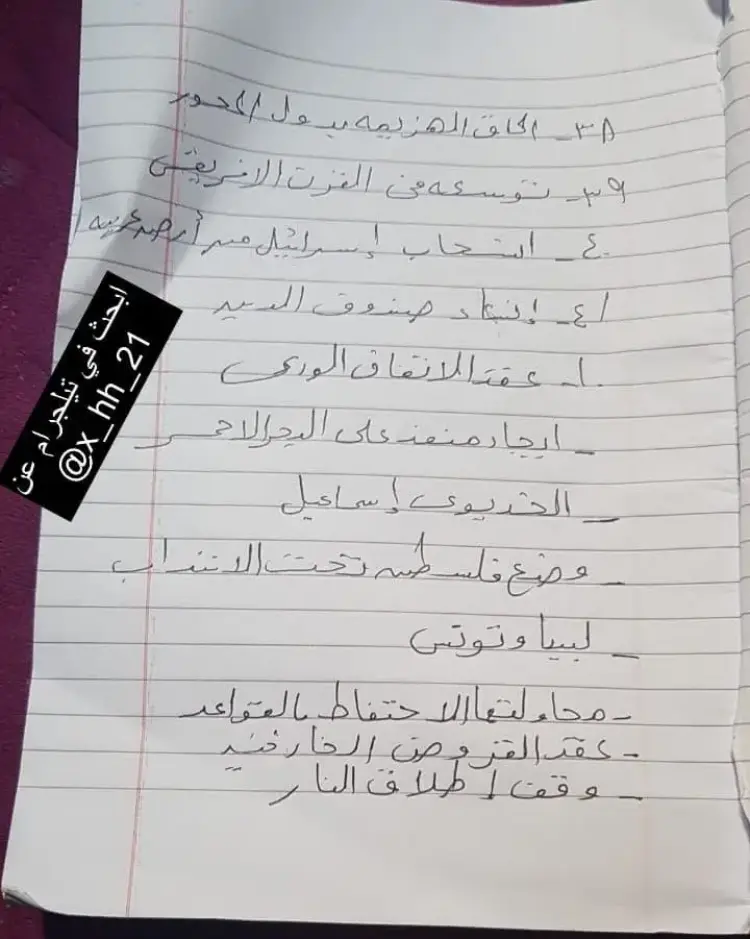 ٣٨ـ الحاق الهزيمه بدول المحور
٣٩ـ توسعه في القرن الافريقى
٤٠ـ انسحاب إسرائيل من أرض عربيه
٤١ـ إنشاء صندوق الدين
١ـ عقد الاتفاق الودى
ـ ايجاد منفذ على البحر الاحمر
ـ الخديوى إسماعيل
ـ وضع فلسطين تحت الانتداب
ـ ليبيا وتونس
ـ محاولتها الاحتفاظ بالقواعد
ـ عقد القروض الخارجيه
ـ وقف إطلاق النار
ابحث في تيلجرام عن
@x_hh_21